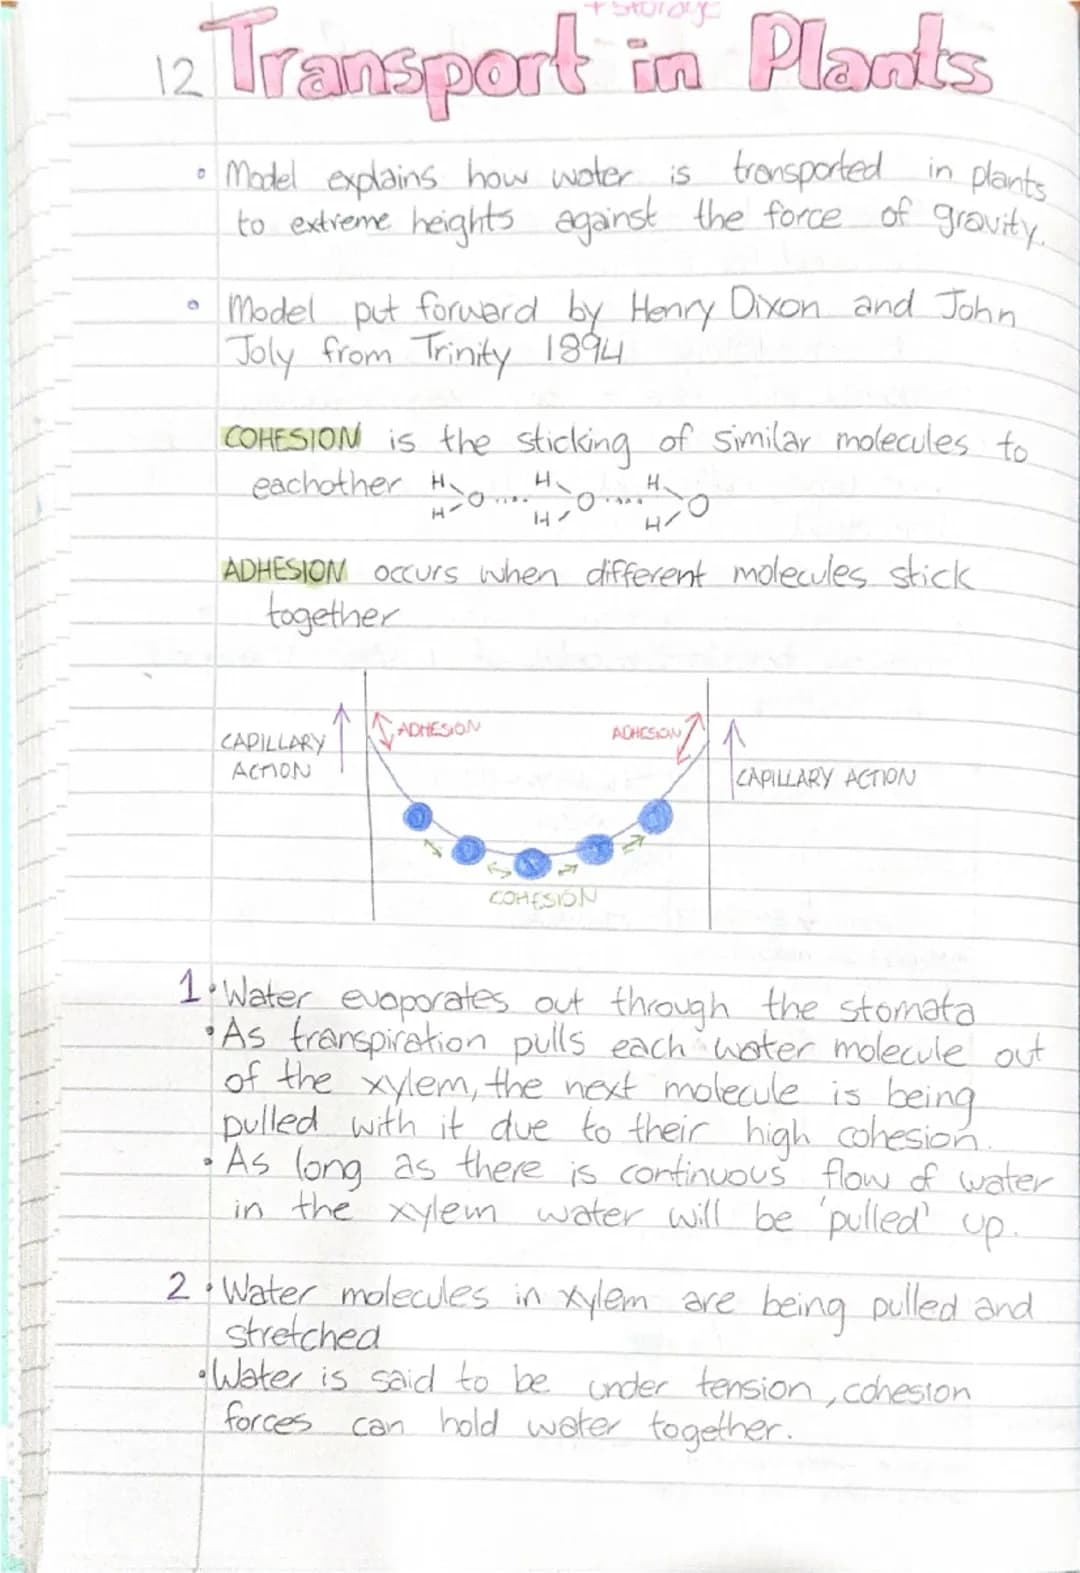 + storage
12 Transport in Plants
• Model explains how water is transported in plants
to extreme heights against the force of gravity.
• Model put forward by Henry Dixon and John
Joly from Trinity 1894
COHESION is the sticking of similar molecules to
eachother H H H
O .... O ..... O
H H H
ADHESION occurs when different molecules stick
together
ADHESION ADHESION
CAPILLARY
ACTION
CAPILLARY ACTION
COHESION
1 • Water evaporates out through the stomata
• As transpiration pulls each water molecule out
of the xylem, the next molecule is being
pulled with it due to their high cohesion.
• As long as there is continuous flow of water
in the xylem water will be 'pulled' up.
2 • Water molecules in xylem are being pulled and
stretched
• Water is said to be under tension, cohesion
forces can hold water together.